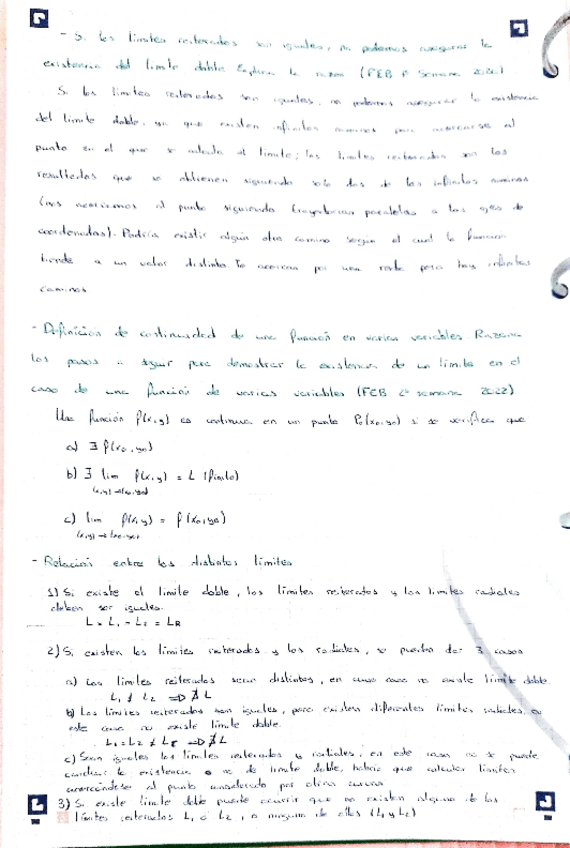 - Si los límites reiterados son iguales, no podemos asegurar la
existencia del límite doble. Explica la razón (FEB 1ª Semana
Si los límites reiterados son iguales, no podemos asegurar la existencia
del límite doble, ya que existen infinitos caminos para acercarse al
punto en el que se calcula el límite; los límites reiterados son los
resultados que se obtienen siguiendo solo dos de los infinitos caminos
(nos acercamos al punto siguiendo trayectorias paralelas a los ejes de
coordenadas). Podría existir algún otro camino según el cual la función
tiende a un valor distinto. Te acercas por una recta pero hay infinitos
caminos
- Definición de continuidad de una función en varias variables. Razona
los pasos a seguir para demostrar la existencia de un límite en el
caso de una función de varias variables (FEB 2ª semana 2022)
Una función f(x,y) es continua en un punto P₀(x₀,y₀) si se verifica que
a) ∃ f(x₀,y₀)
b) ∃ lim f(x,y) = L (finito)
(x,y)→(x₀,y₀)
c) lim f(x,y) = f(x₀,y₀)
(x,y)→(x₀,y₀)
- Relación entre los distintos límites
1) Si existe el límite doble, los límites reiterados y los límites radiales
deben ser iguales.
L = L₁ = L₂ = LR
2) Si existen los límites reiterados y los radiales, se pueden dar 3 casos
a) Los límites reiterados sean distintos, en cuyo caso no existe límite doble.
L₁ ≠ L₂ ⇒ ∄ L
b) Los límites reiterados son iguales, pero existen diferentes límites radiales, en
este caso no existe límite doble.
L₁ = L₂ ≠ LR ⇒ ∄ L
c) Sean iguales los límites reiterados y radiales; en este caso no se puede
concluir la existencia o no de límite doble, habría que calcular límites
acercándose al punto considerado por otras curvas
3) Si existe límite doble puede ocurrir que no existan alguno de los
límites reiterados L₁ ó L₂, o ninguno de ellos (L₁ y L₂)